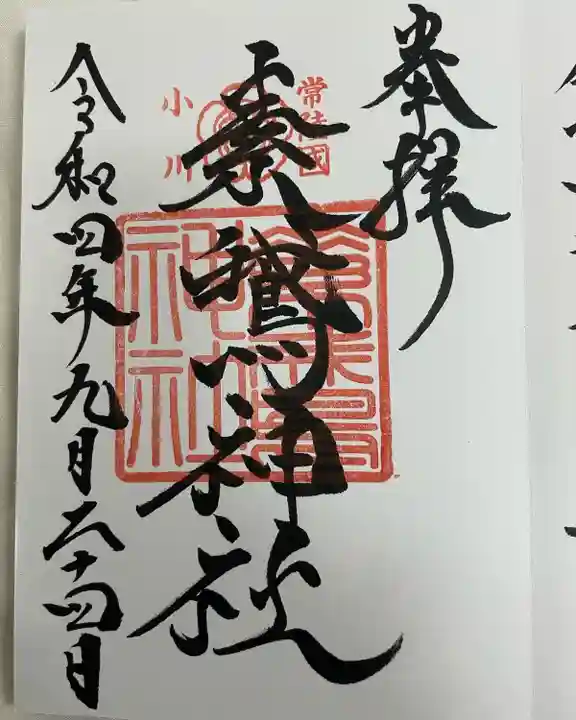 奉拝
常陸國
小川
素鵞神社
素鵞
神社
令和四年九月二十四日